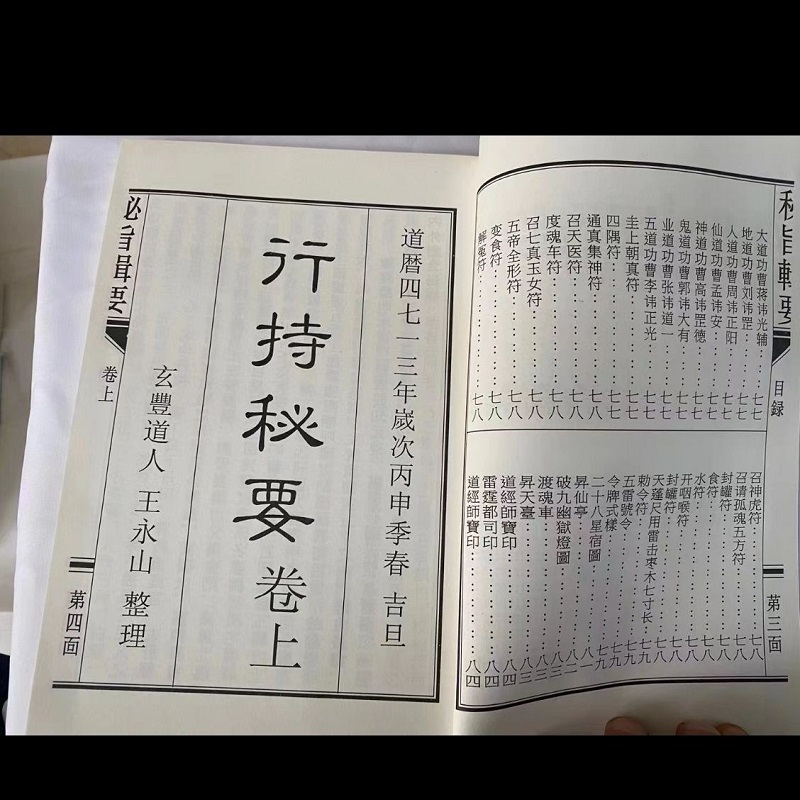 秘旨輯要
目録
第三面
大道功曹蒋讳光辅……七七
地道功曹刘讳罡……七七
人道功曹周讳正阳……七七
仙道功曹孟讳安……七七
神道功曹高讳罡德……七七
鬼道功曹郭讳大有……七七
业道功曹张讳道一……七七
五道功曹李讳正光……七七
圭上朝真符……七八
四隅符……七八
通真集神符……七八
召天医符……七八
度魂车符……七八
召七真玉女符……七八
五帝全形符……七八
变食符……七八
解冤符……七八
召神虎符……七八
召请孤魂五方符……七八
封罐符……七八
食符……七八
水符……七八
开咽喉符……七八
封罐符……七八
天蓬尺用雷击枣木七寸长……七八
勅令符……七九
五雷號令……七九
令牌式樣……七九
二十八星宿圖……
昇仙亭……
破九幽獄燈圖……
渡魂車……八三
昇天臺……八三
道經師寶印……八四
雷霆都司印……八四
道經師寶印……八四
道曆四七一三年歲次丙申季春 吉旦
行持秘要 卷上
玄豐道人 王永山 整理
秘旨輯要
卷上
第四面